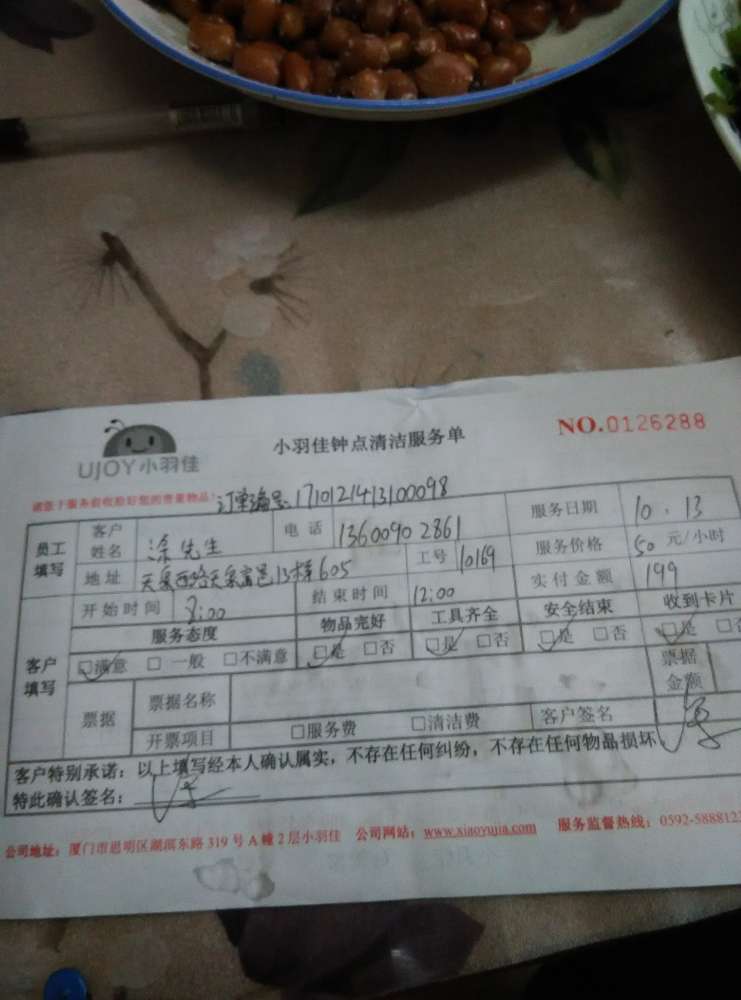 UJOY小羽佳
小羽佳钟点清洁服务单
NO.0126288
请您于服务前收捡好您的贵重物品!
订单编号:1710121413100098
员工填写
客户姓名 涂先生 电话 13600902861 服务日期 10.13
地址 天泉西路天泉富邑13栋605 工号 10169 服务价格 50元/小时
开始时间 8:00 结束时间 12:00 实付金额 199
客户填写
服务态度 物品完好 工具齐全 安全结束 收到卡片
☑满意 □一般 □不满意 ☑是 □否 ☑是 □否 ☑是 □否 ☑是
票据 票据名称 票据金额
开票项目 □服务费 □清洁费 客户签名
客户特别承诺:以上填写经本人确认属实,不存在任何纠纷,不存在任何物品损坏
特此确认签名:
公司地址:厦门市思明区湖滨东路319号A幢2层小羽佳 公司网站:www.xiaoyujia.com 服务监督热线:0592-588812